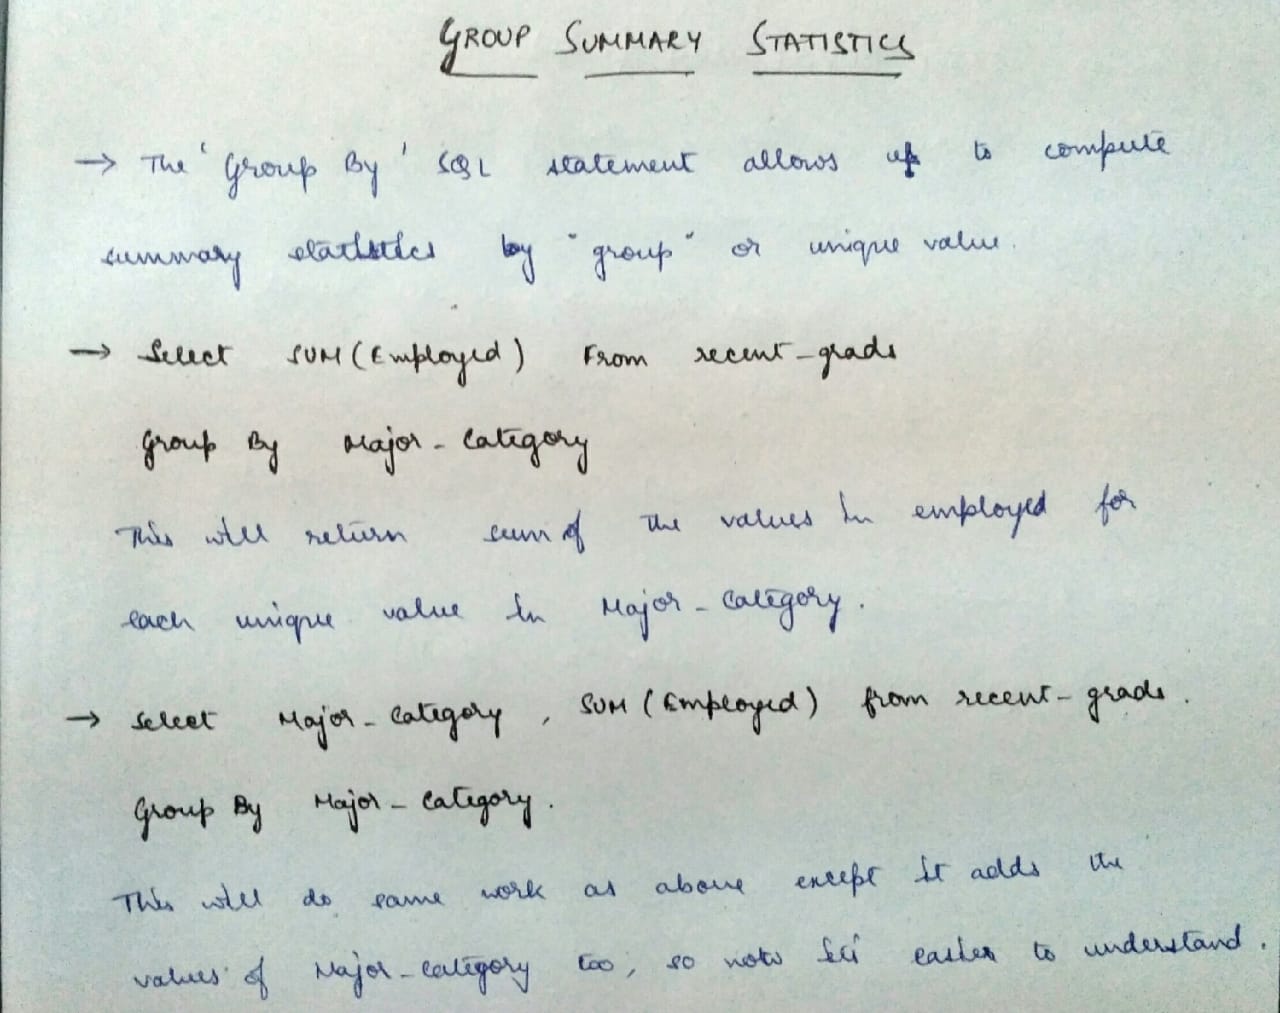 GROUP SUMMARY STATISTICS
→ The 'Group By' SQL statement allows us to compute
summary statistics by "group" or unique value.
→ Select SUM(Employed) From recent-grads
Group By Major-Category
This will return sum of the values in employed for
each unique value in Major-Category.
→ Select Major-Category, SUM(Employed) from recent-grads.
Group By Major-Category.
This will do same work as above except it adds the
values of Major-Category too, so now easier to understand.